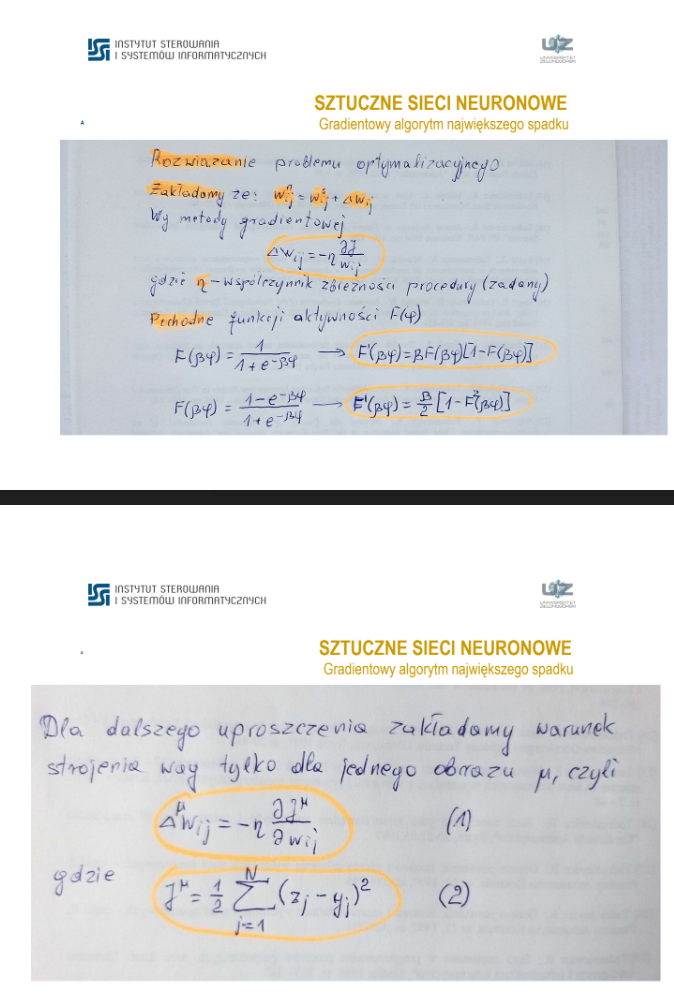 INSTYTUT STEROWANIA
I SYSTEMÓW INFORMATYCZNYCH
UZ
SZTUCZNE SIECI NEURONOWE
Gradientowy algorytm największego spadku
Rozwiązanie problemu optymalizacyjnego
Zakładamy że: w^n_ij = w^s_ij + Δw_ij
Wg metody gradientowej
Δw_ij = -η ∂J/w_ij
gdzie η - współczynnik zbieżności procedury (zadany)
Pochodne funkcji aktywności F(φ)
F(βφ) = 1/(1+e^-βφ) → F'(βφ)=βF(βφ)[1-F(βφ)]
F(βφ) = (1-e^-βφ)/(1+e^-βφ) → F'(βφ) = β/2 [1-F²(βφ)]
INSTYTUT STEROWANIA
I SYSTEMÓW INFORMATYCZNYCH
UZ
SZTUCZNE SIECI NEURONOWE
Gradientowy algorytm największego spadku
Dla dalszego uproszczenia zakładamy warunek
strojenia wag tylko dla jednego obrazu μ, czyli
Δ^μ w_ij = -η ∂J^μ/∂w_ij (1)
gdzie J^μ = 1/2 Σ_{j=1}^{N} (z_j - y_j)² (2)